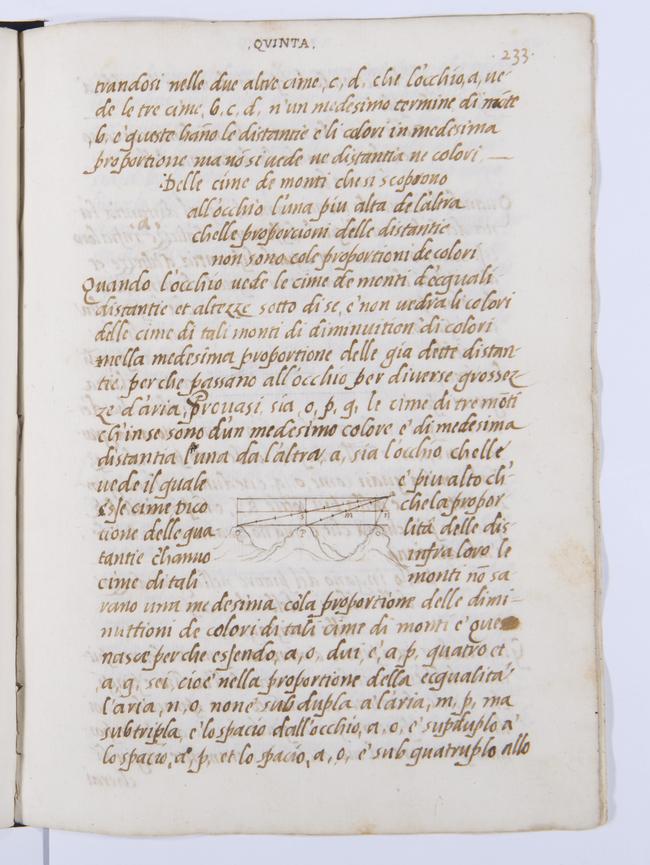 .QVINTA.
.233.
trandosi nelle due altre cime, c, d, che l'occhio, a, ve-
de le tre cime, b, c, d, n'un medesimo termine di monte
,b, e queste hano le distantie e li colori in medesima
proportione ma nó si vede ne distantia ne colori —
Delle cime de monti che si scoprono
all'occhio l'una piu alta de l'altra
chelle proporcioni delle distantie
non sono cole proportioni de colori
Quando l'occhio vede le cime de menti d'ecquali
distantie et altezze sotto di se, e non vedra li colori
delle cime di tali monti di diminuition di colori
nella medesima proportione delle gia dette distan-
tie perche passano all'occhio per diverse grossez
ze d'aria, Provasi, sia, o, p, q, le cime di tre móti
ch'in se sono d'un medesimo colore e di medesima
distantia l'una da l'altra, a, sia l'occhio chelle
vede il quale e piu alto ch'
esse cime dico chela propor
tione delle qua lità delle dis
tantie ch'anno infra loro le
cime di tali monti nō sa
rano una medesima cóla proportione delle dimi-
nuttioni de colori di tali cime di monti e que
nasce perche essendo, a, o, dui, e, a, p, quatro et
,a, q, sei, cioè nella proportione della ecqualità
l'aria, n, o, non e sub dupla a l'aria, m, p, ma
subtripla, e lo spacio dall'occhio, a, o, e supduplo a
lo spacio, a, p, et lo spacio, a, o, e sub quatruplo allo